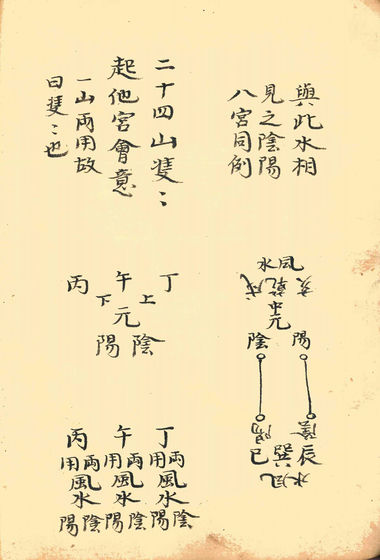 與此水相
見之陰陽
八宮同例
風水
亥乾戌
中元
陽 陰
陰 陽
辰巽巳
風水
二十四山雙〻
起他宮會意
一山兩用故
曰雙〻也
丁 午 丙
上 下
元
陰 陽
丁 午 丙
兩用 兩用 兩用
風水 風水 風水
陰陽 陰陽 陰陽